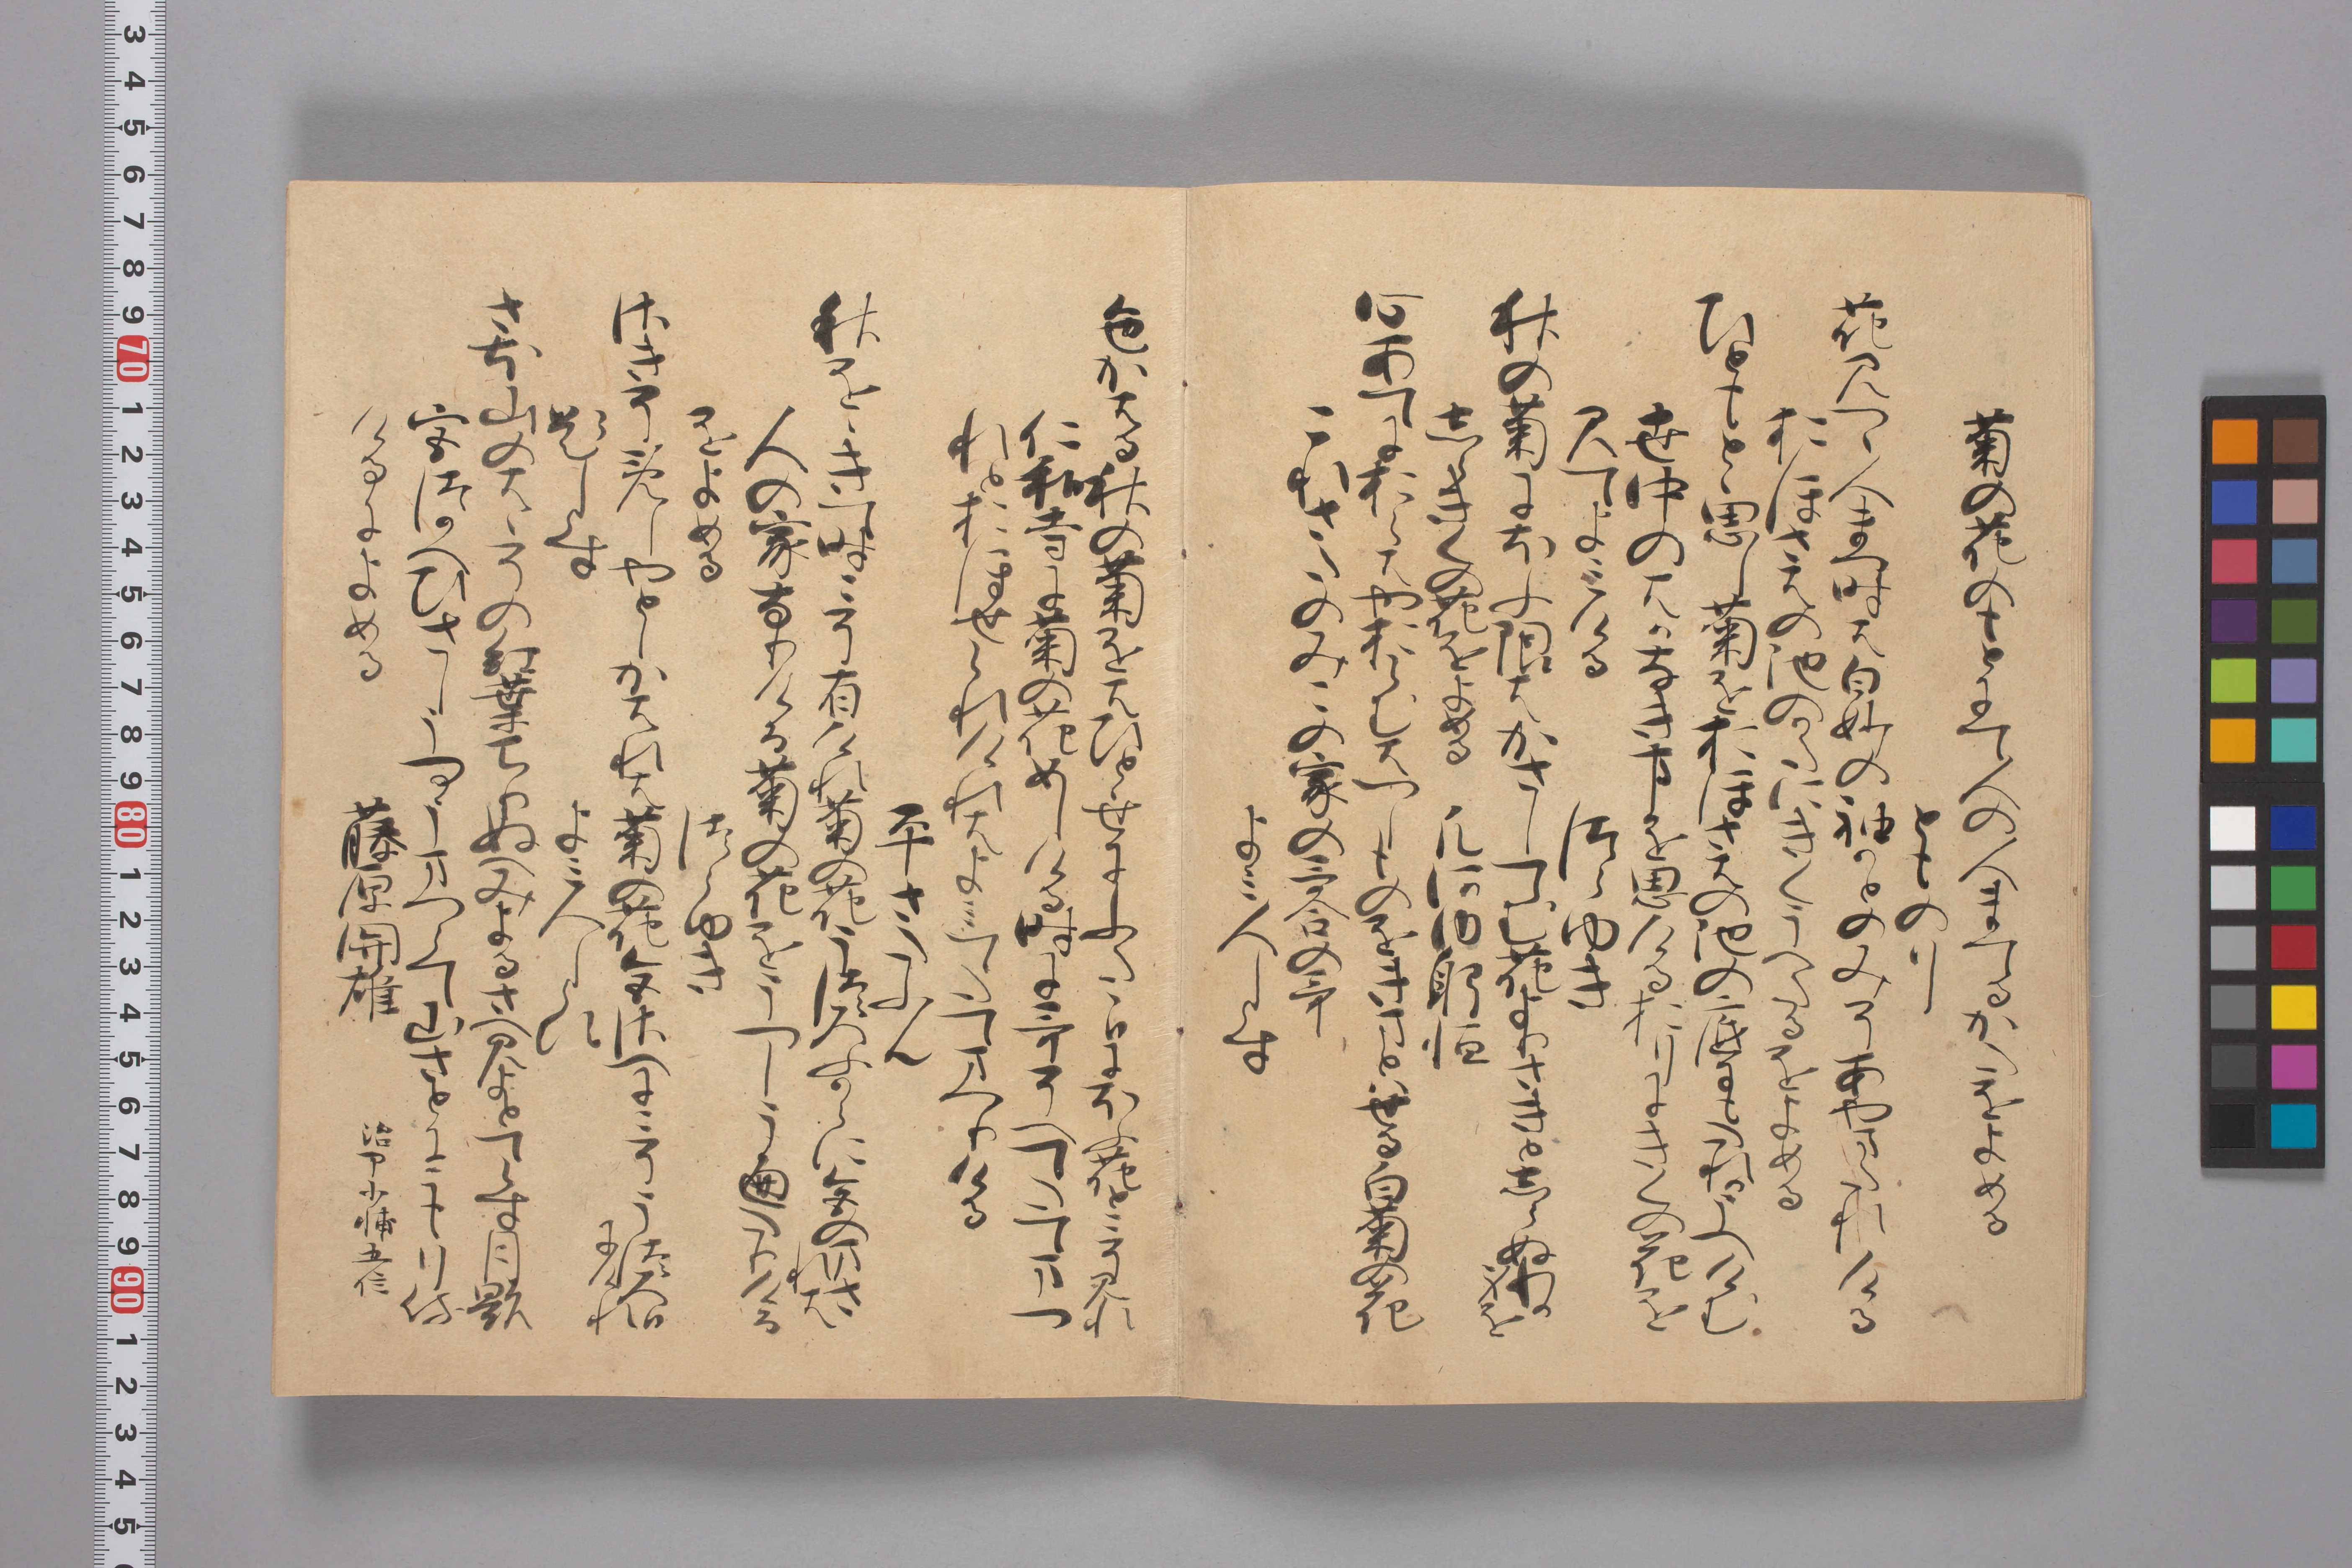 菊の花のもとにて人の人まてるかたをよめる
とものり
花見つゝ人まつ時は白妙の袖かとのみそあやまたれける
おほさはの池のかたにきくうへたるをよめる
ひともとゝ思し菊をおほさはの池の底にもたれかうへけむ
世中のはかなきことを思ける折にきくの花を
見てよみける
つらゆき
秋の菊にほふ限はかさしてむ花よりさきとしらぬわか身を
しらきくの花をよめる 凡河内躬恒
心あてにおらはやおらむはつしものをきまとはせる白菊の花
これさたのみこの家の哥合の哥
よみ人しらす
色かはる秋の菊をはひとゝせにふたゝひにほふ花とこそ見れ
仁和寺に菊の花めしける時にうたそへてたてまつれと
おほせられけれはよみてたてまつりける
平さたふん
秋をゝきて時こそ有けれ菊の花うつろふからに色のまされは
人の家なりける菊の花をうつしうへたりける
をよめる つらゆき
さきそめしやとしかはれは菊の花色さへにこそうつろひにけれ
題しらす よみ人しらす
さほ山のはゝそのもみちゝりぬへみよるさへ見よとてらす月影
宮つかへひさしうつかうまつらて山さとにこもり侍
けるによめる
藤原関雄 治部少輔五位